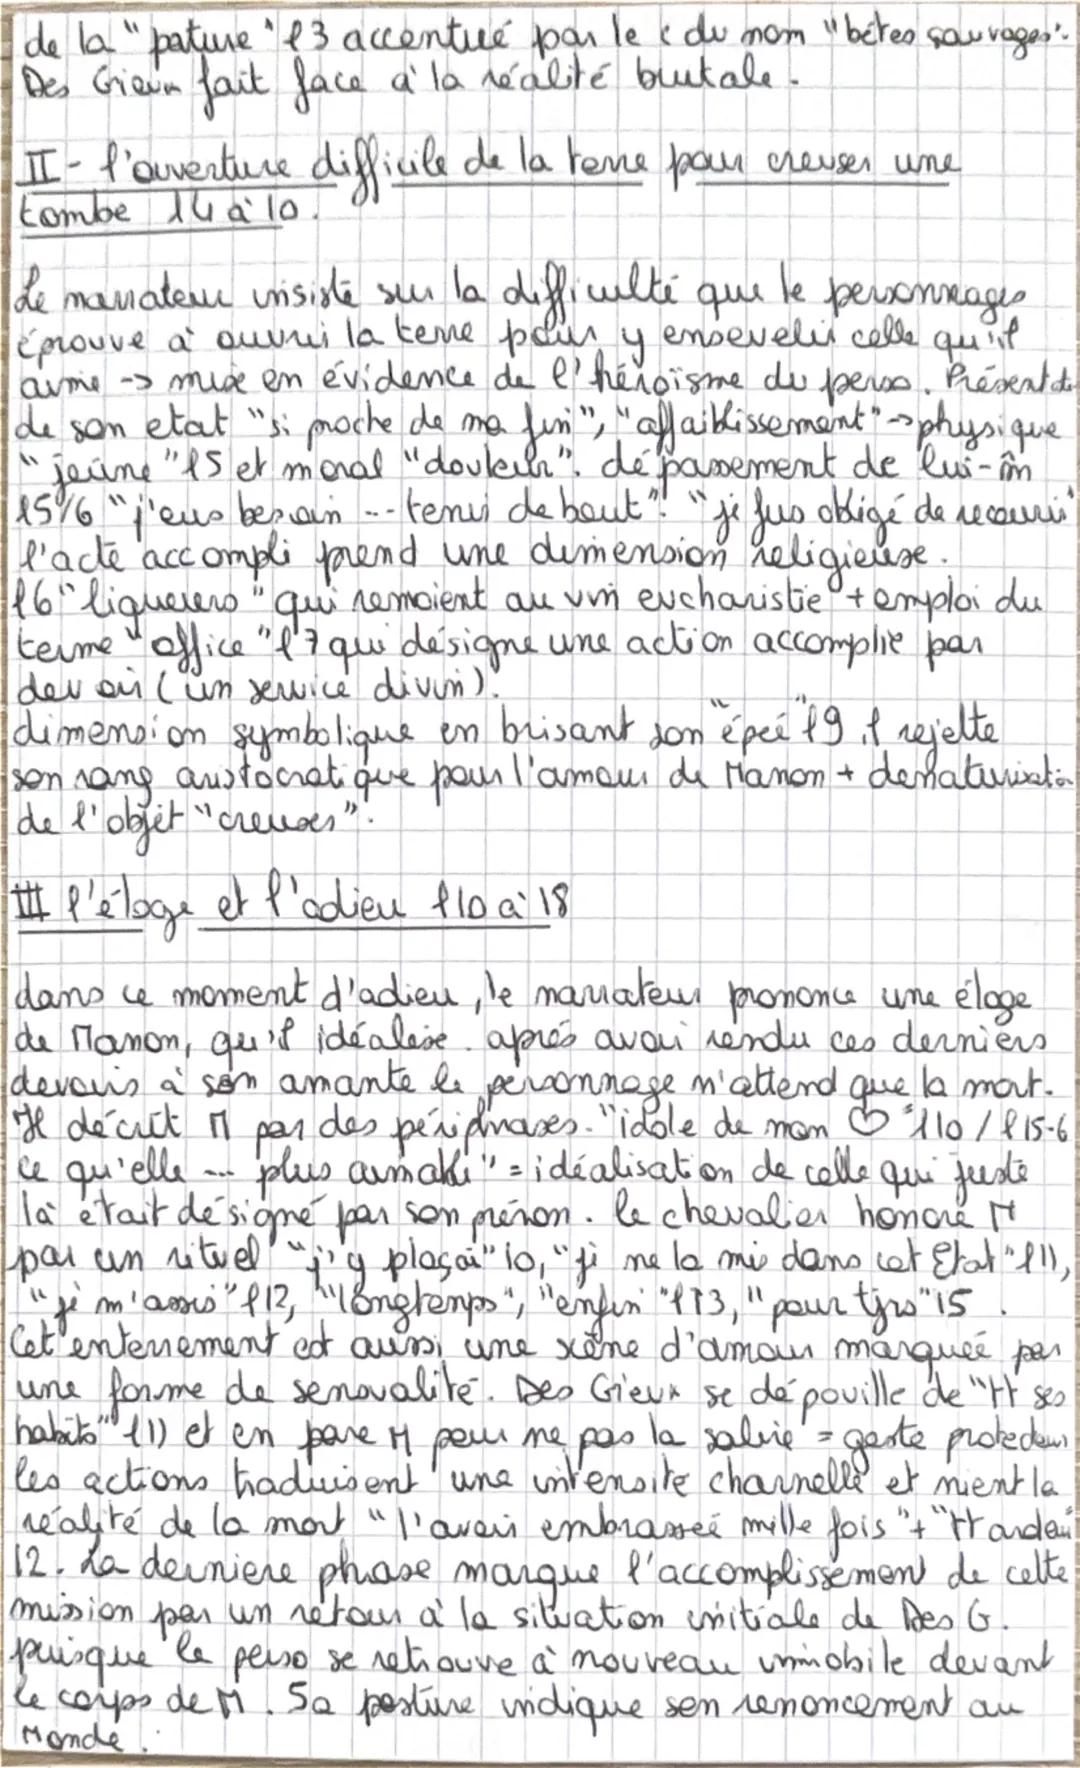 de la "pature" l3 accentué par le c du nom "bêtes sauvages".
Des Grieux fait face à la réalité brutale.
II - l'ouverture difficile de la terre pour creuser une
tombe l4 à 10.
Le narrateur insiste sur la difficulté que le personnages
éprouve à ouvrir la terre pour y ensevelir celle qu'il
aime -> mise en évidence de l'héroïsme du perso. Présent de
de son etat "si proche de ma fin", "affaiblissement" -> physique
"jeûne" l5 et moral "douleur". dépassement de lui-m̂
l5/6 "j'eus besoin --- tenir debout". "je fus obligé de recourir"
l'acte accompli prend une dimension religieuse.
l6 "liqueurs" qui renvoient au vin eucharistie + emploi du
terme "office" l7 qui désigne une action accomplie par
devoir (un service divin).
dimension symbolique en brisant son "épée" l9 il rejette
son rang aristocratique pour l'amour de Manon + denaturisation
de l'objet "creuser".
III l'éloge et l'adieu l10 à 18
dans ce moment d'adieu, le narrateur prononce une éloge
de Manon, qu'il idéalise. après avoir rendu ces derniers
devoirs à son amante le personnage n'attend que la mort.
Il décrit M par des périphrases. "idole de mon ♡" l10 / l15-6
ce qu'elle --- plus aimable" = idéalisation de celle qui juste
là était désigné par son prénom. le chevalier honore M
par un rituel "j'y plaçai" 10, "je ne la mis dans cet état" l11,
"je m'assis" l12, "longtemps", "enfin" l13, "pour tjrs" 15.
Cet enterrement est aussi une scène d'amour marquée par
une forme de sensualité. Des Grieux se dépouille de "tt ses
habits" l11 et en pare M pour ne pas la salir = geste protecteur
les actions traduisent une intensité charnelle et nient la
réalité de la mort "l'avoir embrassée mille fois" + "tt ardeur
12. La derniere phase marque l'accomplissement de cette
mission par un retour à la situation initiale de Des G.
puisque le perso se retrouve à nouveau immobile devant
le corps de M. Sa posture indique son renoncement au
Monde.